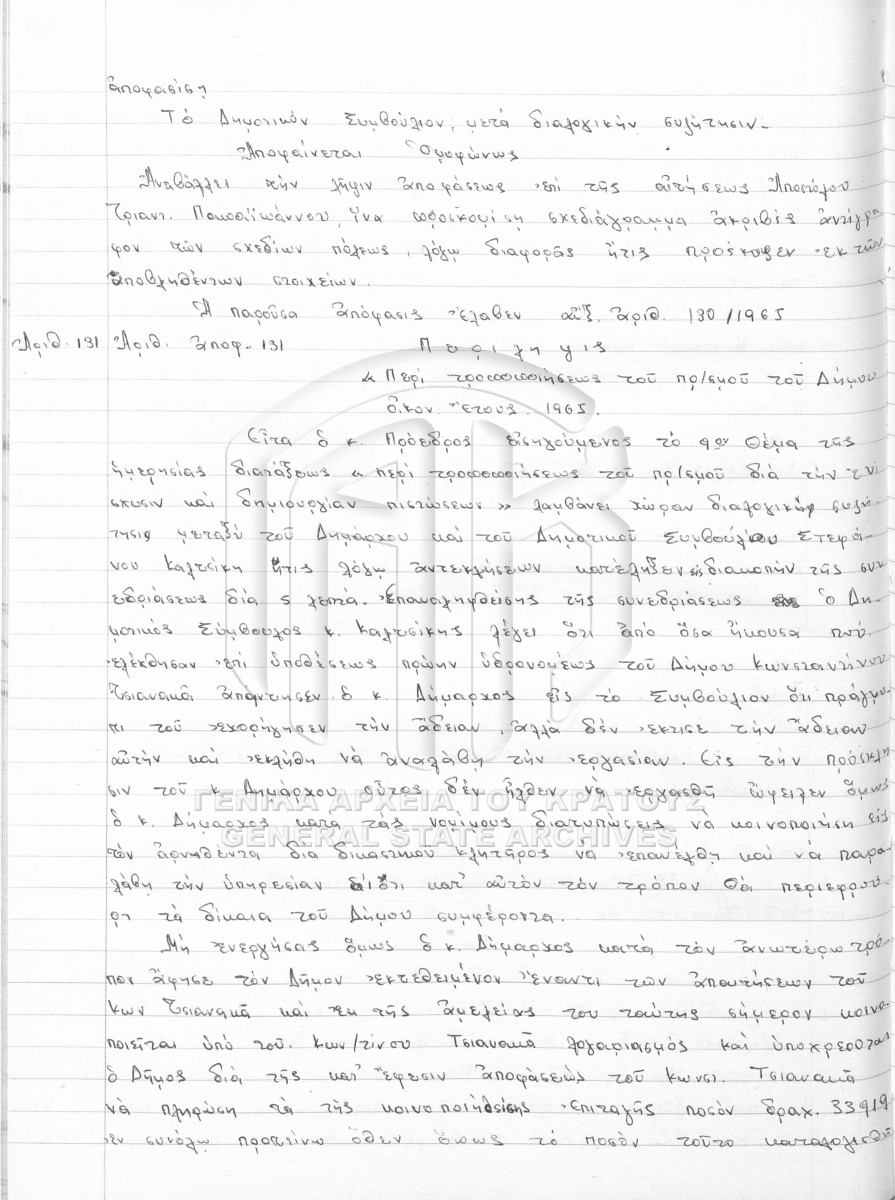 ἀποφασίση
Τὸ Δημοτικὸν Συμβούλιον, μετὰ διαλογικὴν συζήτησιν.
Ἀποφαίνεται Ὁμοφώνως
Ἀναβάλλει τὴν λῆψιν ἀποφάσεως ἐπὶ τῆς αἰτήσεως Ἀποστόλου
Τριαντ. Παπαϊωάννου, ἵνα προσκομίση σχεδιάγραμμα ἀκριβὲς ἀντίγρα
φον τῶν σχεδίων πόλεως, λόγῳ διαφορᾶς ἥτις προέκυψεν ἐκ τῶν
ὑποβληθέντων στοιχείων.
Ἡ παροῦσα ἀπόφασις ἔλαβεν αὔξ. ἀριθ. 130/1965
Ἀριθ. 131 Ἀριθ. ἀποφ. 131 Περίληψις
« Περὶ τροποποιήσεως τοῦ πρ/σμοῦ τοῦ Δήμου
Οἰκον. Ἔτους 1965.
Εἶτα ὁ κ. Πρόεδρος εἰσηγούμενος τὸ 9ον Θέμα τῆς
ἡμερησίας διατάξεως « περὶ τροποποιήσεως τοῦ πρ/σμοῦ διὰ τὴν ἐνί
σχυσιν καὶ δημιουργίαν πιστώσεων » λαμβάνει χώραν διαλογικὴ συζή
τησις μεταξὺ τοῦ Δημάρχου καὶ τοῦ Δημοτικοῦ Συμβούλου Στεφά-
νου Καλτσίκη ἥτις λόγῳ ἀντεκλήσεων κατέληξεν εἰς διακοπὴν τῆς συν
εδριάσεως διὰ 5 λεπτά. Ἐπαναληφθείσης τῆς συνεδριάσεως ὁ Δη-
μοτικὸς Σύμβουλος κ. Καλτσίκης λέγει ὅτι ἀπὸ ὅσα ἤκουσα πού
ἐλέχθησαν ἐπὶ ὑποθέσεως πρώην ὑδρονομέως τοῦ Δήμου Κωνσταντίνου
Τσιανακᾶ ἀπήντησεν ὁ κ. Δήμαρχος εἰς τὸ Συμβούλιον ὅτι πράγμα
τι τοῦ ἐχορήγησεν τὴν ἄδειαν, ἀλλὰ δὲν ἔκτισε τὴν ἄδειαν
αὐτὴν καὶ ἐκλήθη νὰ ἀναλάβη τὴν ἐργασίαν. Εἰς τὴν πρόσκλη
σιν τοῦ κ Δημάρχου οὗτος δὲν ἦλθεν νὰ ἐργασθῆ ὤφειλεν ὅμως
ὁ κ. Δήμαρχος κατὰ τὰς νομίμους διατυπώσεις νὰ κοινοποιήση εἰς
τὸν ἀρνηθέντα διὰ δικαστικοῦ κλητῆρος νὰ ἐπανέλθη καὶ νὰ παρα
λάβη τὴν ὑπηρεσίαν διότι κατ' αὐτὸν τὸν τρόπον θὰ περιεφρου
ρῆ τὰ δίκαια τοῦ Δήμου συμφέροντα.
Μὴ ἐνεργήσας ὅμως ὁ κ. Δήμαρχος κατὰ τὸν ἀνωτέρω τρό-
πον ἄφησε τὸν Δῆμον ἐκτεθειμένον ἔναντι τῶν ἀπαιτήσεων τοῦ
Κων Τσιανακᾶ καὶ ἐκ τῆς ἀμελείας του ταύτης σήμερον κοινο
ποιεῖται ὑπὸ τοῦ Κων/τίνου Τσιανακᾶ λογαριασμὸς καὶ ὑποχρεοῦται
ὁ Δῆμος διὰ τῆς κατ' ἔφεσιν ἀποφάσεως τοῦ Κωνστ. Τσιανακᾶ
νὰ πληρώση τὰ τῆς κοινοποιηθείσης ἐπιταγῆς ποσὸν δραχ. 33919
ἐν συνόλῳ προτείνω ὅθεν ὅπως τὸ ποσὸν τοῦτο καταλογισθῆ
ΓΕΝΙΚΑ ΑΡΧΕΙΑ ΤΟΥ ΚΡΑΤΟΥΣ
GENERAL STATE ARCHIVES